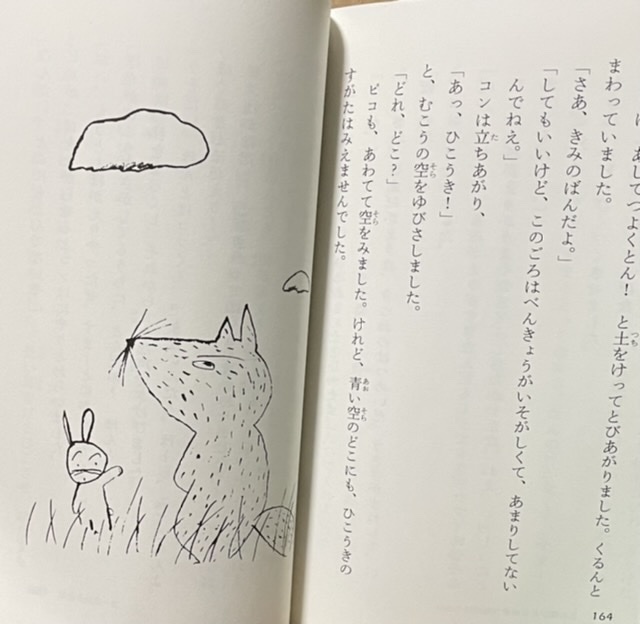 あしでつよくとん！　と土をけってとびあがりました。くるんと
まわっていました。
「さあ、きみのばんだよ。」
「してもいいけど、このごろはべんきょうがいそがしくて、あまりしてない
んでねえ。」
コンは立ちあがり、
「あっ、ひこうき！」
と、むこうの空をゆびさしました。
「どれ、どこ？」
ピコも、あわてて空をみました。けれど、青い空のどこにも、ひこうきの
すがたはみえませんでした。
164